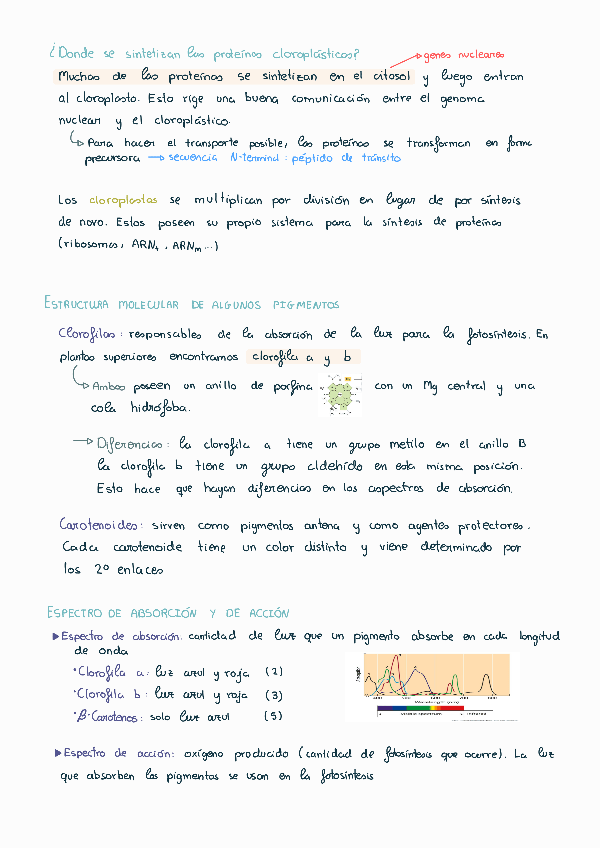 ¿Donde se sintetizan las proteínas cloroplásticas?
genes nucleares
Muchas de las proteínas se sintetizan en el citosol y luego entran
al cloroplasto. Esto rige una buena comunicación entre el genoma
nuclear y el cloroplástico.
Para hacer el transporte posible, las proteínas se transforman en forma
precursora → secuencia N-termind: péptido de tránsito
Los cloroplastos se multiplican por división en lugar de por síntesis
de novo. Estos poseen su propio sistema para la síntesis de proteínas
(ribosomas, ARNt, ARNm ...)
ESTRUCTURA MOLECULAR DE ALGUNOS PIGMENTOS
Clorofilas: responsables de la absorción de la luz para la fotosíntesis. En
plantas superiores encontramos clorofila a y b
Ambas poseen un anillo de porfina con un Mg central y una
cola hidrófoba.
Diferencias: la clorofila a tiene un grupo metilo en el anillo B
la clorofila b tiene un grupo aldehído en esta misma posición.
Esto hace que hayan diferencias en los aspectros de absorción.
Carotenoides: sirven como pigmentos antena y como agentes protectores.
Cada carotenoide tiene un color distinto y viene determinado por
los 2º enlaces
ESPECTRO DE ABSORCIÓN Y DE ACCIÓN
Espectro de absorción: cantidad de luz que un pigmento absorbe en cada longitud
de onda
• Clorofila a: luz azul y roja (2)
• Clorofila b: luz azul y roja (3)
• β-Carotenos: solo luz azul (5)
Espectro de acción: oxígeno producido (cantidad de fotosíntesis que ocurre). La luz
que absorben los pigmentos se usan en la fotosíntesis